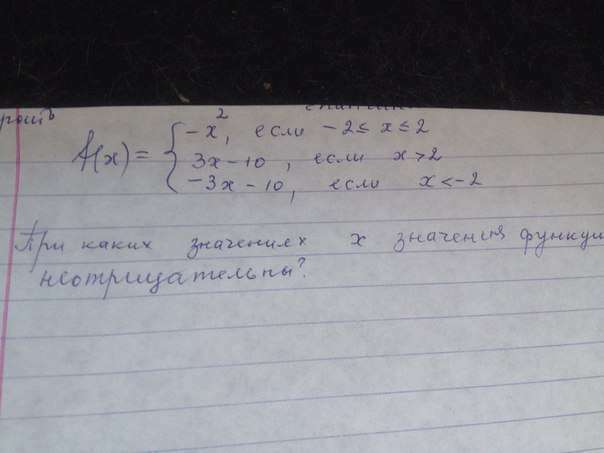 -x², если -2≤ x ≤ 2
f(x) = { 3x-10, если x>2
-3x-10, если x<-2
При каких значениях x значения функци
неотрицательны?